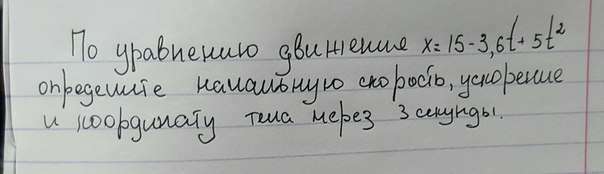 По уравнению движения x=15-3,6t+5t²
определите начальную скорость, ускорение
и координату тела через 3 секунды.